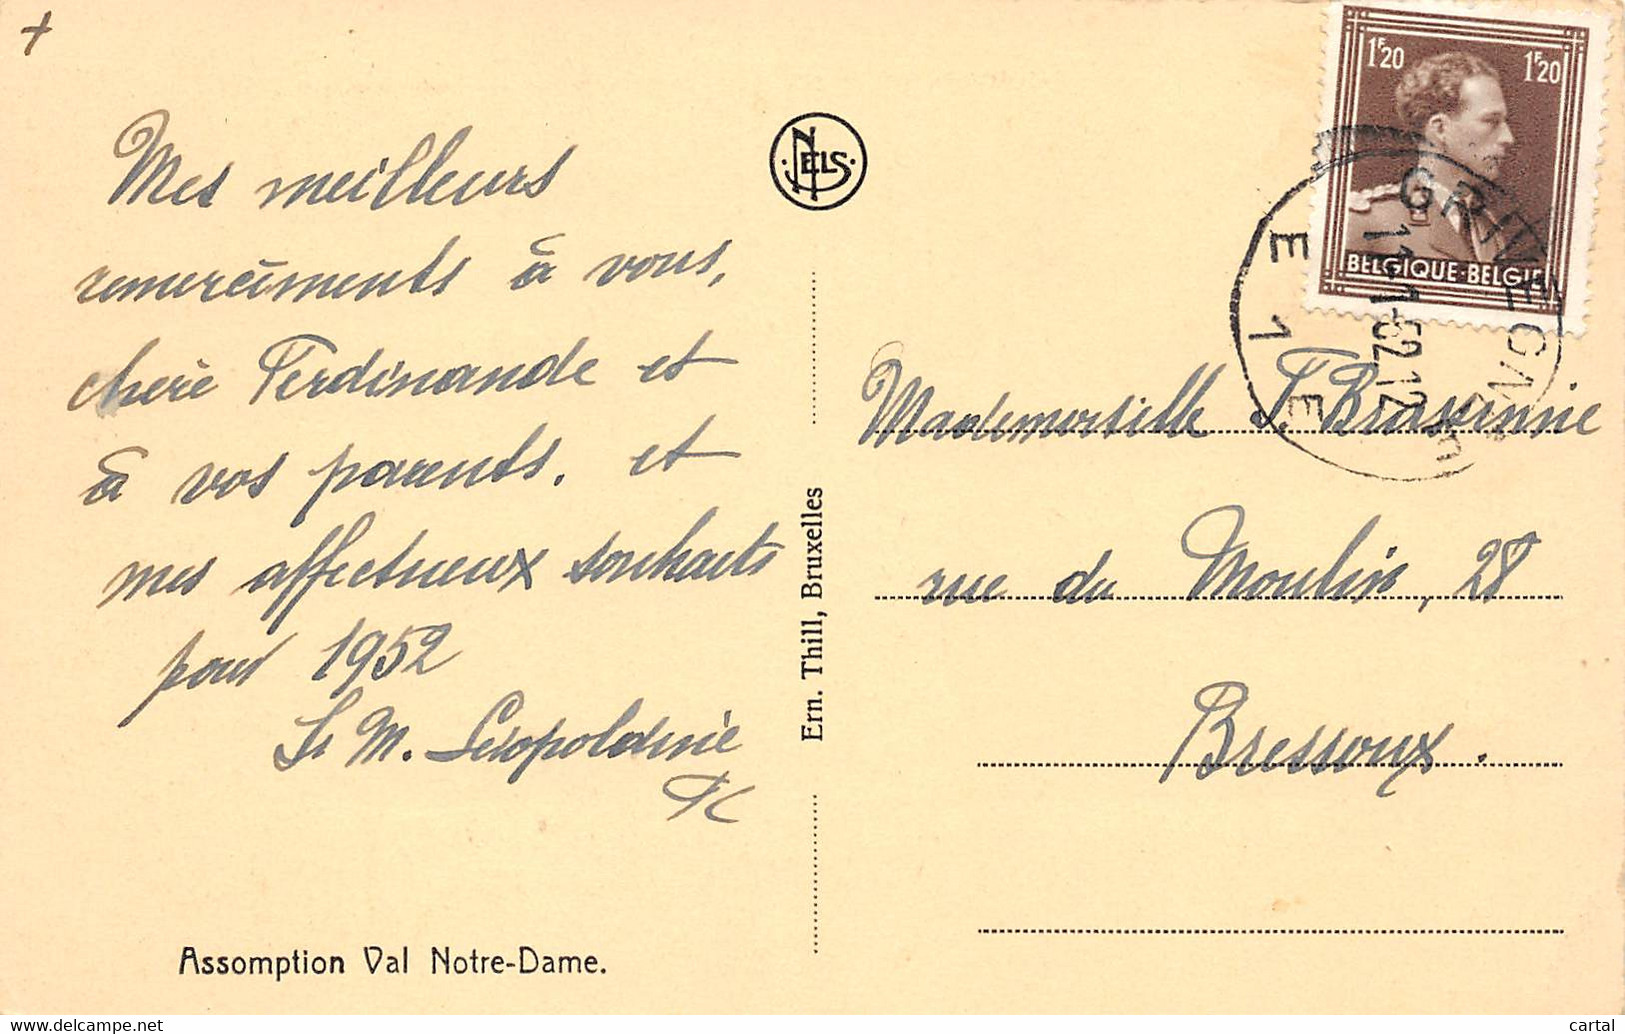 +
Mes meilleurs
remerciments à vous,
chère Ferdinande et
à vos parents, et
mes affectueux souhaits
pour 1952
Sr M. Léopoldine
Assomption Val Notre-Dame.
NELS
Ern. Thill, Bruxelles
1F20 1F20
BELGIQUE-BELGIE
GRIVEGNEE 1
11-1-52.12
E 1 E
Mademoiselle F. Brasinne
rue du Moulin, 28
Bressoux.
www.delcampe.net
cartal